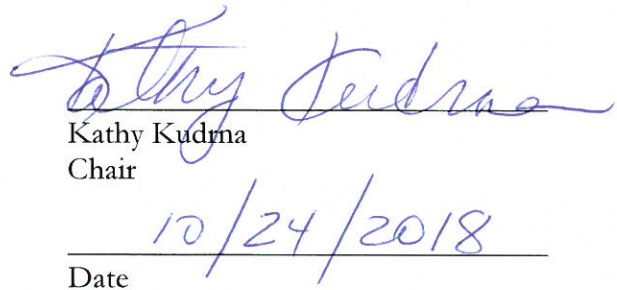 Kathy Kudrna
Kathy Kudrna
Chair
10/24/2018
Date